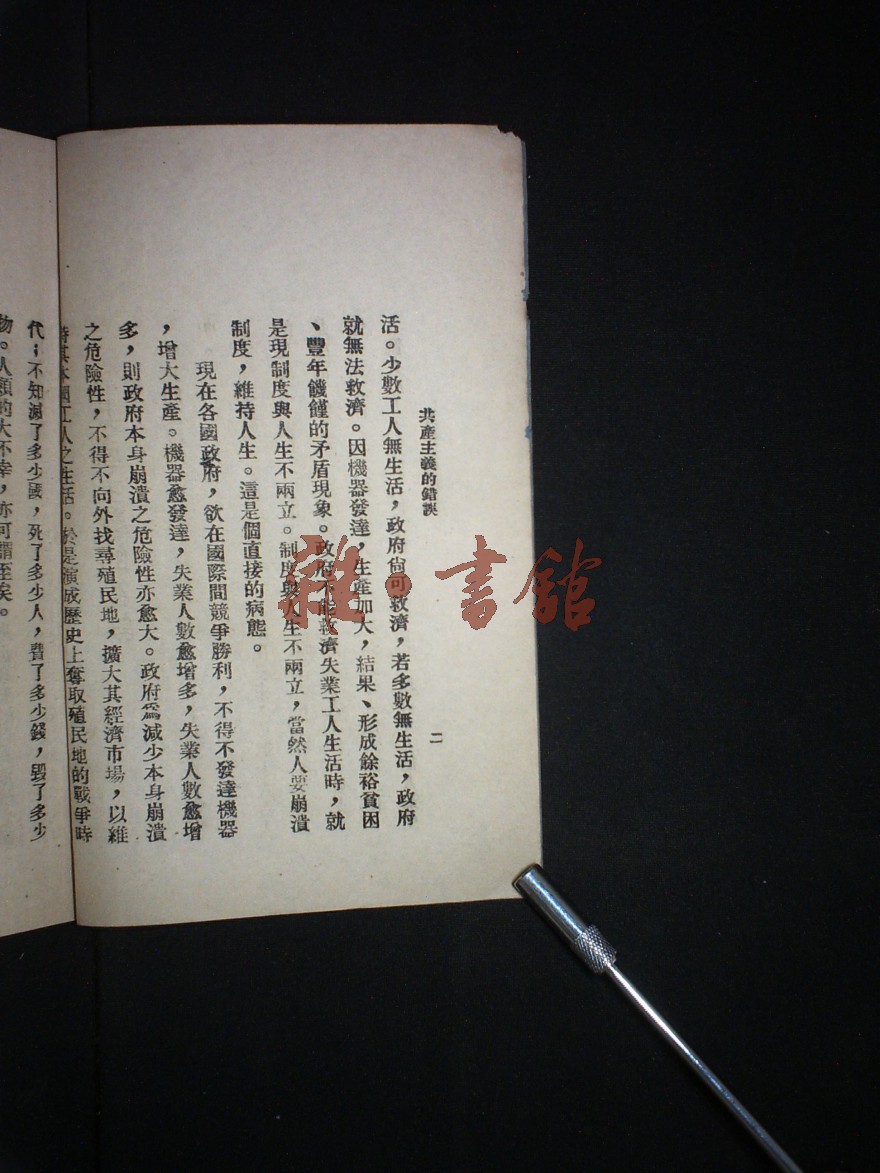 共產主義的錯誤
二
活。少數工人無生活，政府尙可救濟，若多數無生活，政府
就無法救濟。因機器發達，生產加大，結果、形成餘裕貧困
、豐年饑饉的矛盾現象。政府不能救濟失業工人生活時，就
是現制度與人生不兩立。制度與人生不兩立，當然人要崩潰
制度，維持人生。這是個直接的病態。
現在各國政府，欲在國際間競爭勝利，不得不發達機器
，增大生產。機器愈發達，失業人數愈增多，失業人數愈增
多，則政府本身崩潰之危險性亦愈大。政府爲減少本身崩潰
之危險性，不得不向外找尋殖民地，擴大其經濟市場，以維
持其本國工人之生活。於是演成歷史上奪取殖民地的戰爭時
代；不知滅了多少國，死了多少人，費了多少錢，毀了多少
物。人類的大不幸，亦可謂至矣。
雜·書館